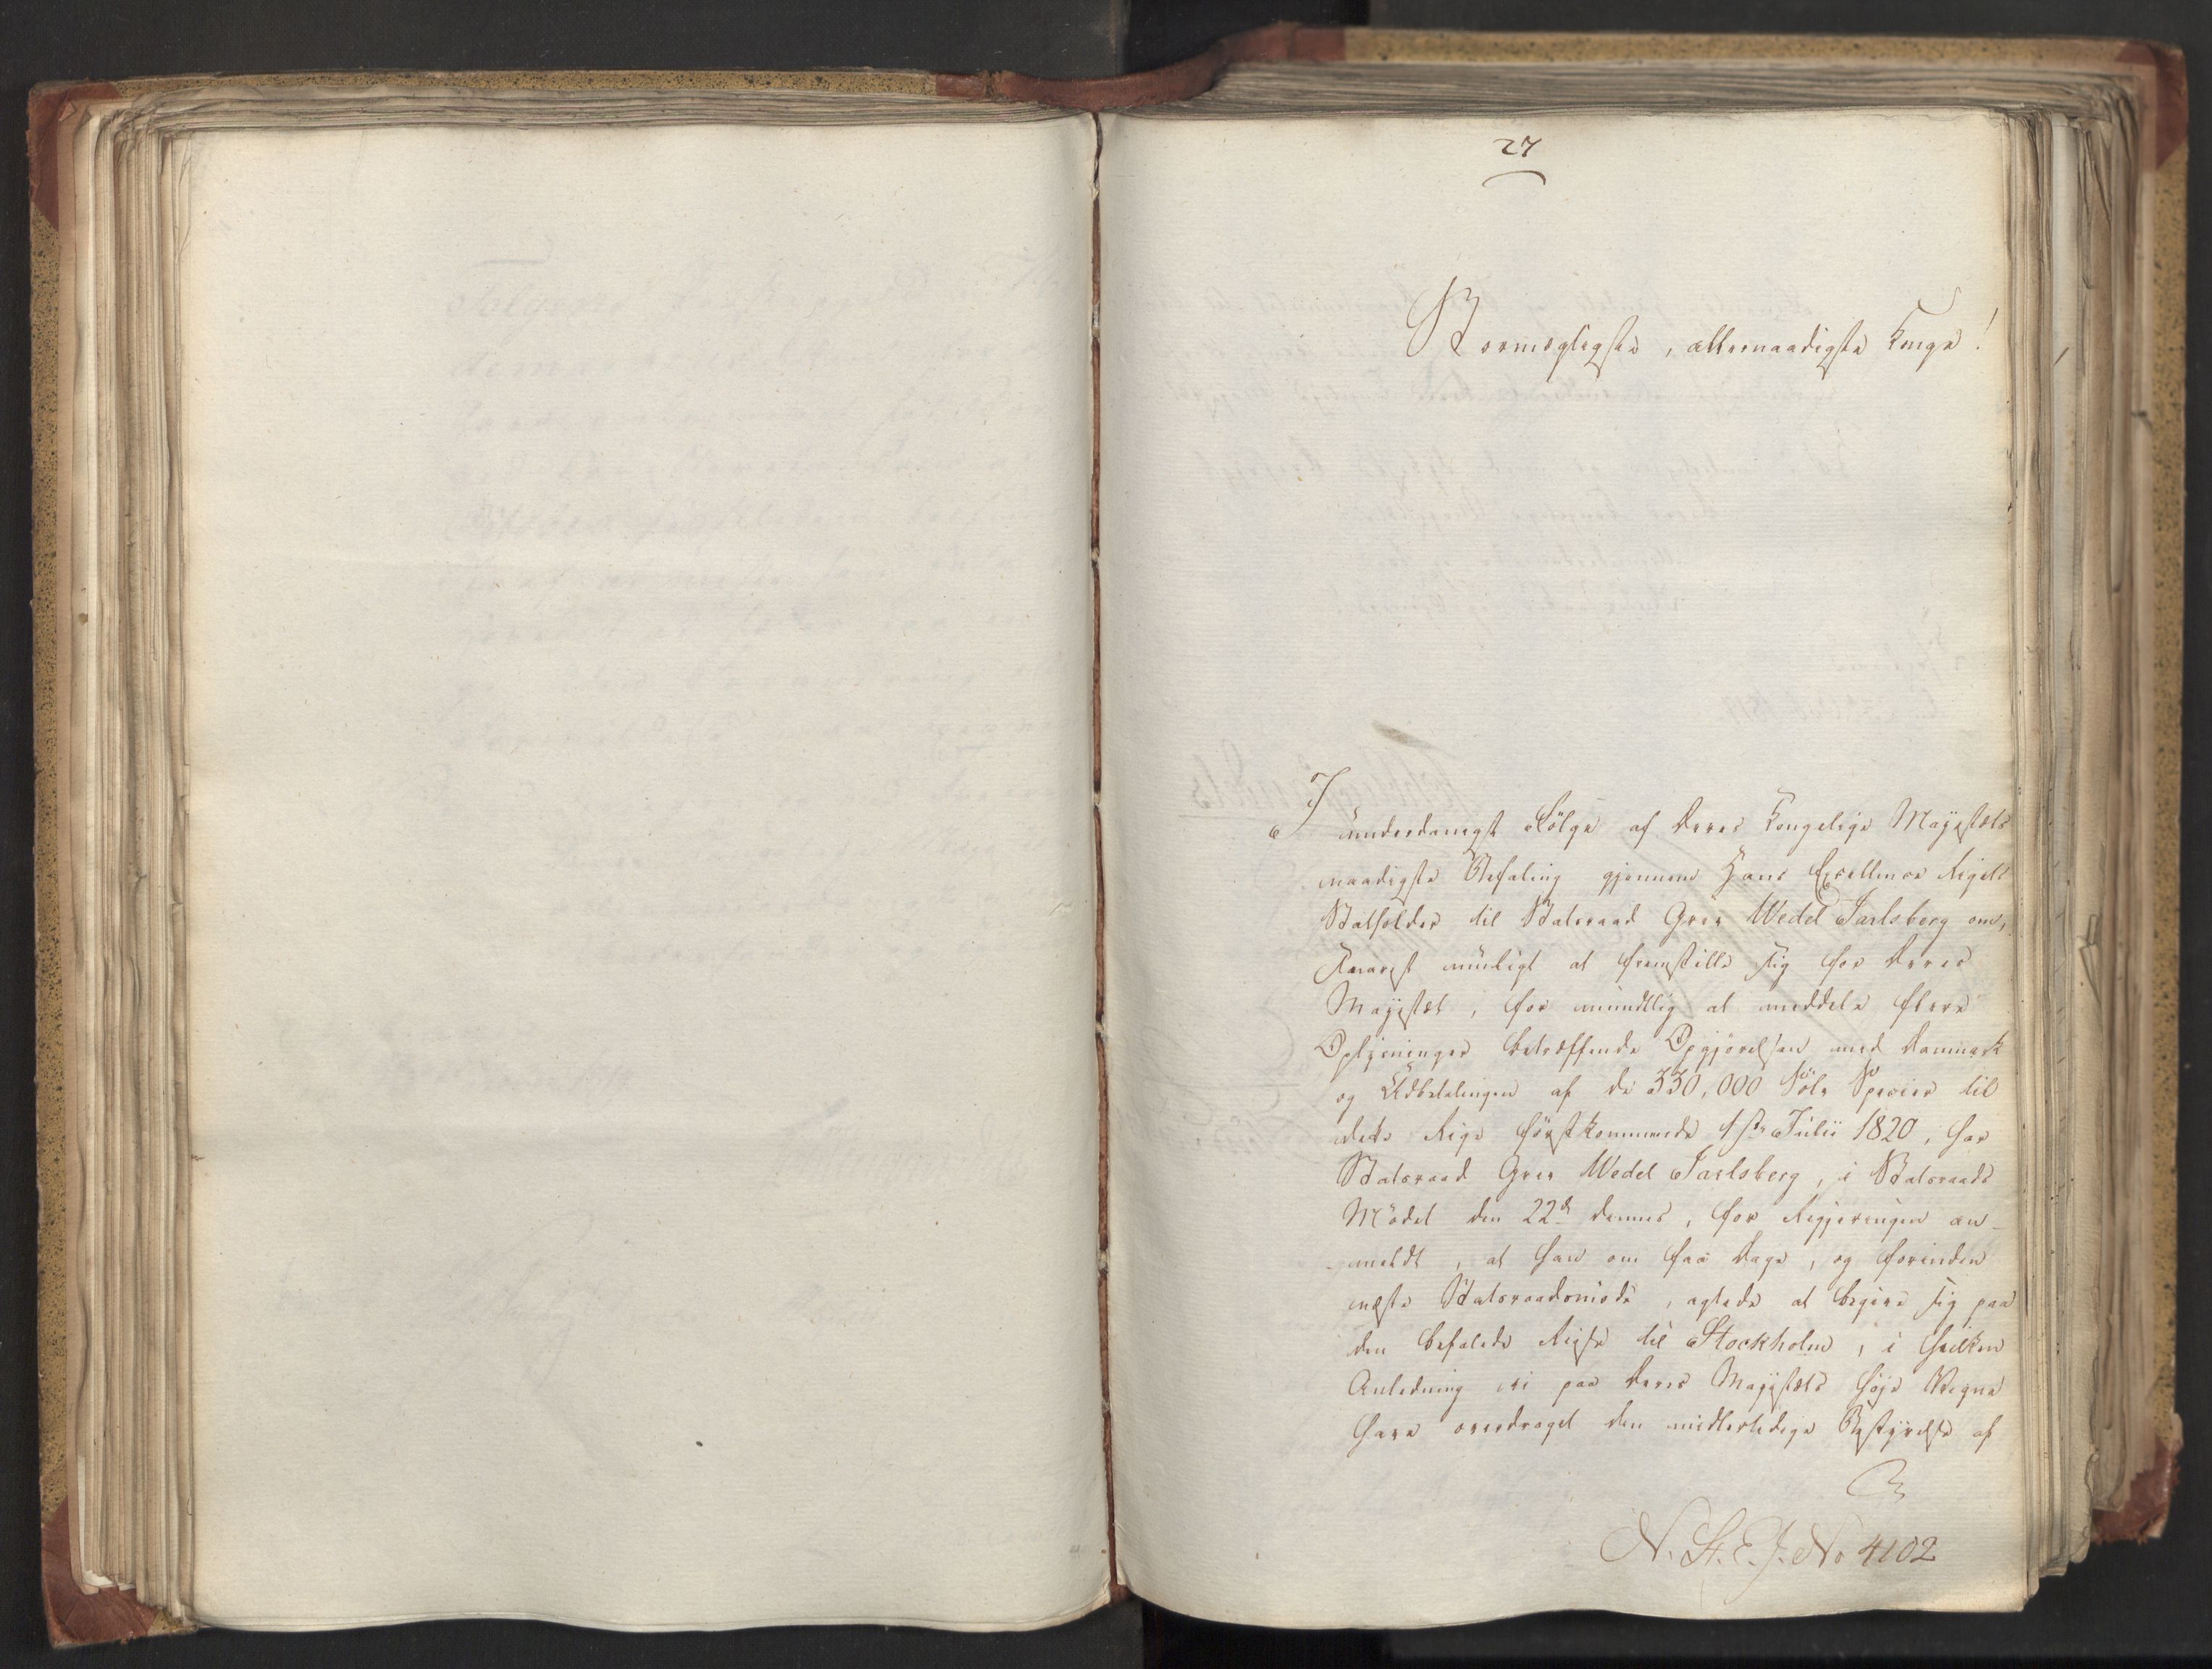 27
Stormægtigste, allernaadigste Konge!
I underdanigst Følge af Deres Kongelige Majestæts
naadigste Befaling gjennem Hans Excellence Rigets
Statholder til Statsraad Grev Wedel Jarlsberg om,
snarest muligt at fremstille sig for Deres
Majestæt, for mundtlig at meddele flere
Oplysninger betræffende Opgjørelsen med Danmark
og Udbetalingen af de 330,000 Sølv Species til
dette Rige førstkommende 1ste Julii 1820, har
Statsraad Grev Wedel Jarlsberg, i Statsraads
Mødet den 22d dennes, for Regjeringen an-
meldt, at han om faa Dage, og forinden
næste Statsraadsmøde, agtede at begive sig paa
den befalede Rejse til Stockholm, i hvilken
Anledning vi paa Deres Majestæts høje Vegne
have overdraget den midlertidige Bestyrelse af
N. St. E. J. No 4102